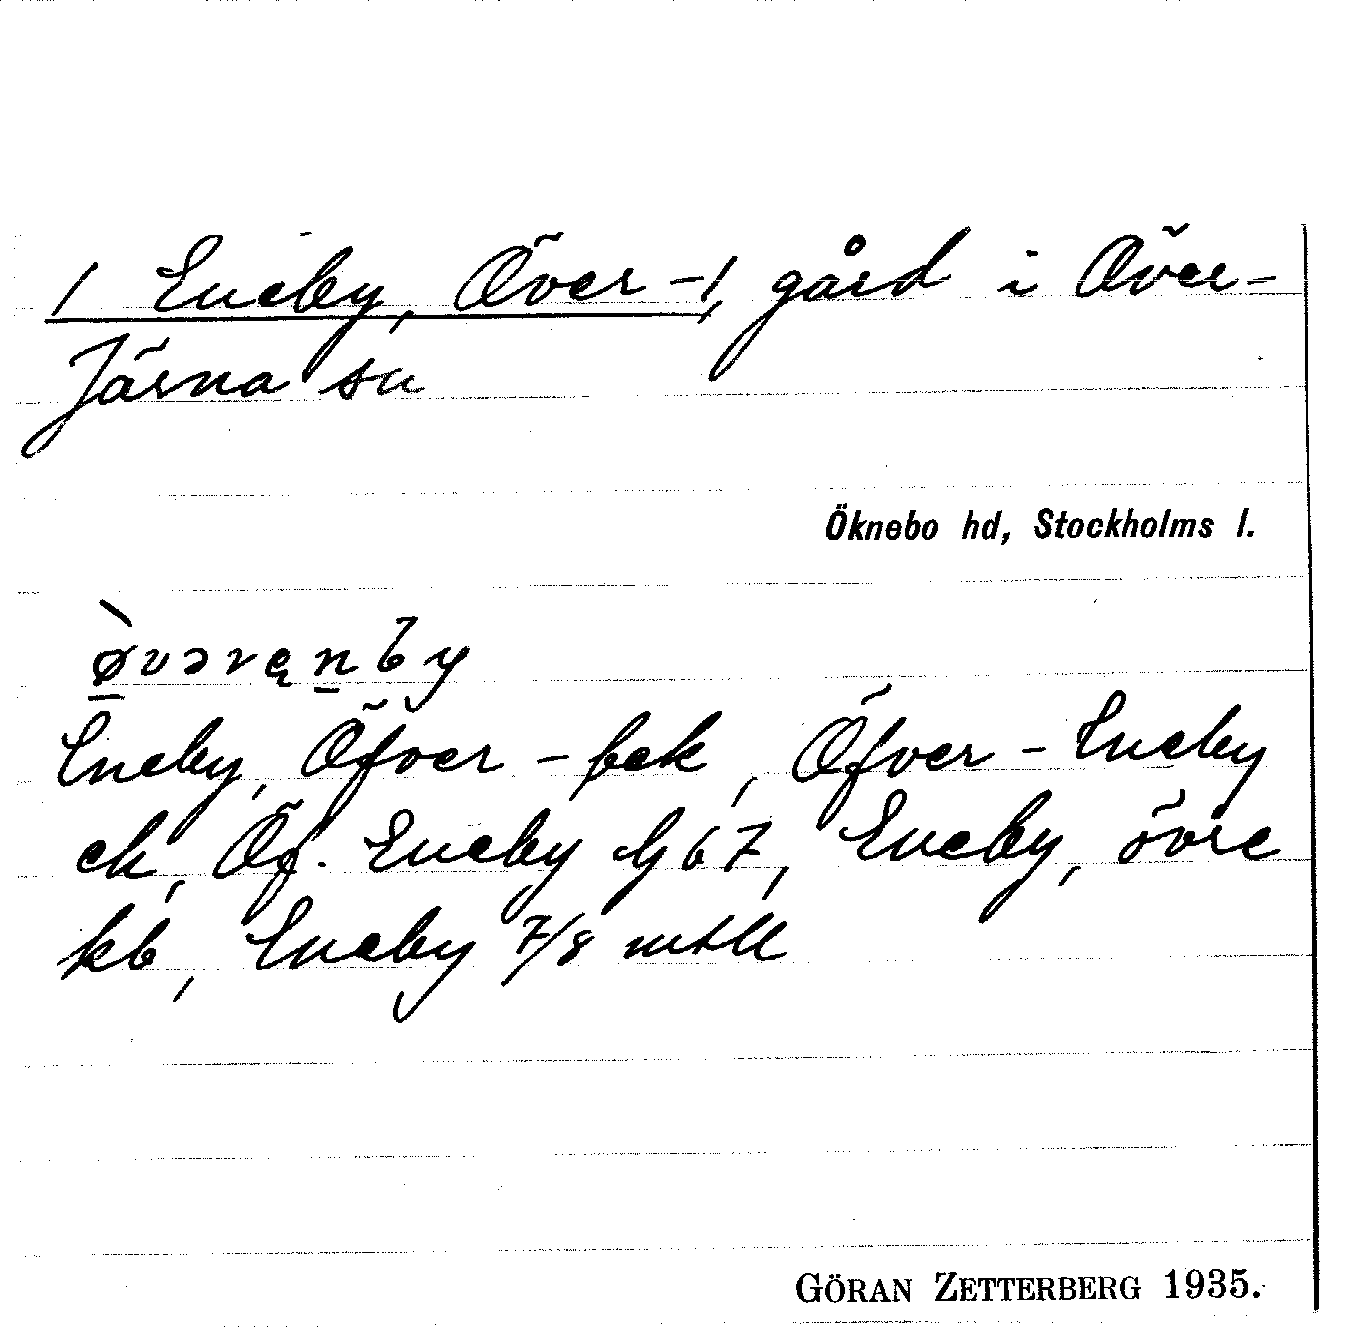 / Eneby, Över- /, gård i Över-
Järna sn
Öknebo hd, Stockholms l.
ø̀vəręnby
Eneby, Öfver - fck, Öfver - Eneby
ck, Öf. Eneby Gb 7, Eneby, övre
kb, Eneby 7/8 mtll
GÖRAN ZETTERBERG 1935.